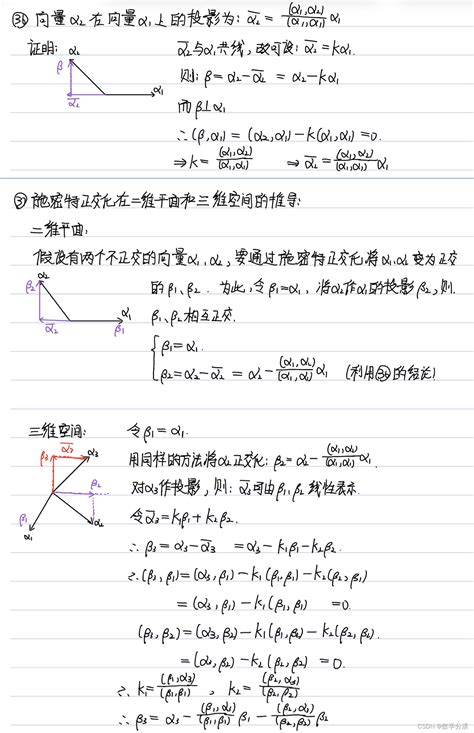 ㊱ 向量α₂在向量α₁上的投影为: ᾱ₂ = (α₁,α₂)/(α₁,α₁) α₁
证明: α₂
β
ᾱ₂
α₁
ᾱ₂与α₁共线, 故可设: ᾱ₂ = kα₁.
则: β = α₂-ᾱ₂ = α₂-kα₁
而β⊥α₁
∴(β,α₁) = (α₂,α₁)-k(α₁,α₁) = 0.
⇒k = (α₁,α₂)/(α₁,α₁) ⇒ ᾱ₂ = (α₁,α₂)/(α₁,α₁) α₁
施密特正交化在二维平面和三维空间的推导:
二维平面:
假设有两个不正交的向量α₁,α₂, 要通过施密特正交化将α₁α₂变为正交
的β₁、β₂. 为此, 令β₁=α₁, 将α₂作α₁的投影β₂, 则
α₂
β₂
ᾱ₂
α₁
β₁
β₁、β₂相互正交.
β₁=α₁.
β₂=α₂-ᾱ₂ = α₂-(α₁,α₂)/(α₁,α₁) α₁ (利用㊱的结论)
三维空间: 令β₁=α₁.
用同样的方法将α₂正交化: β₂=α₂-(α₁,α₂)/(α₁,α₁) α₁.
对α₃作投影, 则: ᾱ₃可由β₁,β₂线性表示.
ᾱ₃
β₃
α₃
β₂
β₁
α₁
α₂
令ᾱ₃=k₁β₁+k₂β₂.
∴β₃=α₃-ᾱ₃ =α₃-k₁β₁-k₂β₂.
∴(β₃,β₁)=(α₃,β₁)-k₁(β₁,β₁)-k₂(β₂,β₁)
=(α₃,β₁)-k₁(β₁,β₁) =0.
(β₃,β₂)=(α₃,β₂)-k₁(β₁,β₂)-k₂(β₂,β₂).
=(α₃,β₂)-k₂(β₂,β₂) =0.
∴k₁=(β₁,α₃)/(β₁,β₁) , k₂=(β₂,α₃)/(β₂,β₂)
∴β₃=α₃-(β₁,α₃)/(β₁,β₁) β₁-(β₂,α₃)/(β₂,β₂) β₂
CSDN @数学分贼